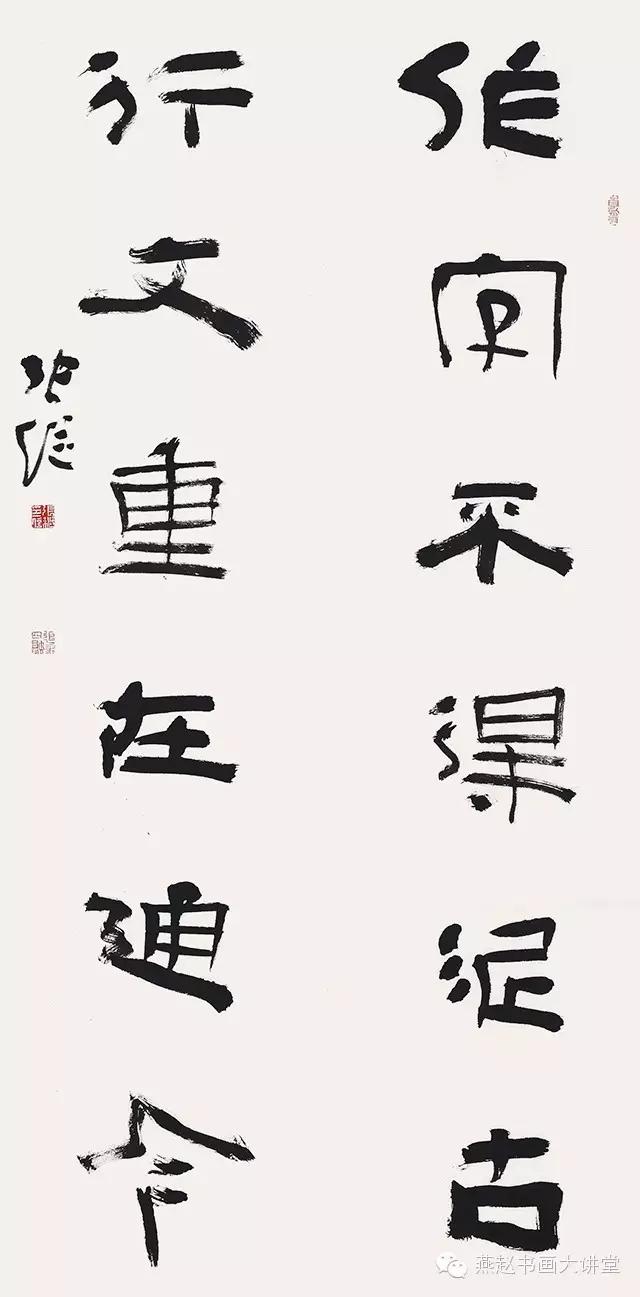 作字不得泥古
行文重在通今
张继
燕赵书画大讲堂